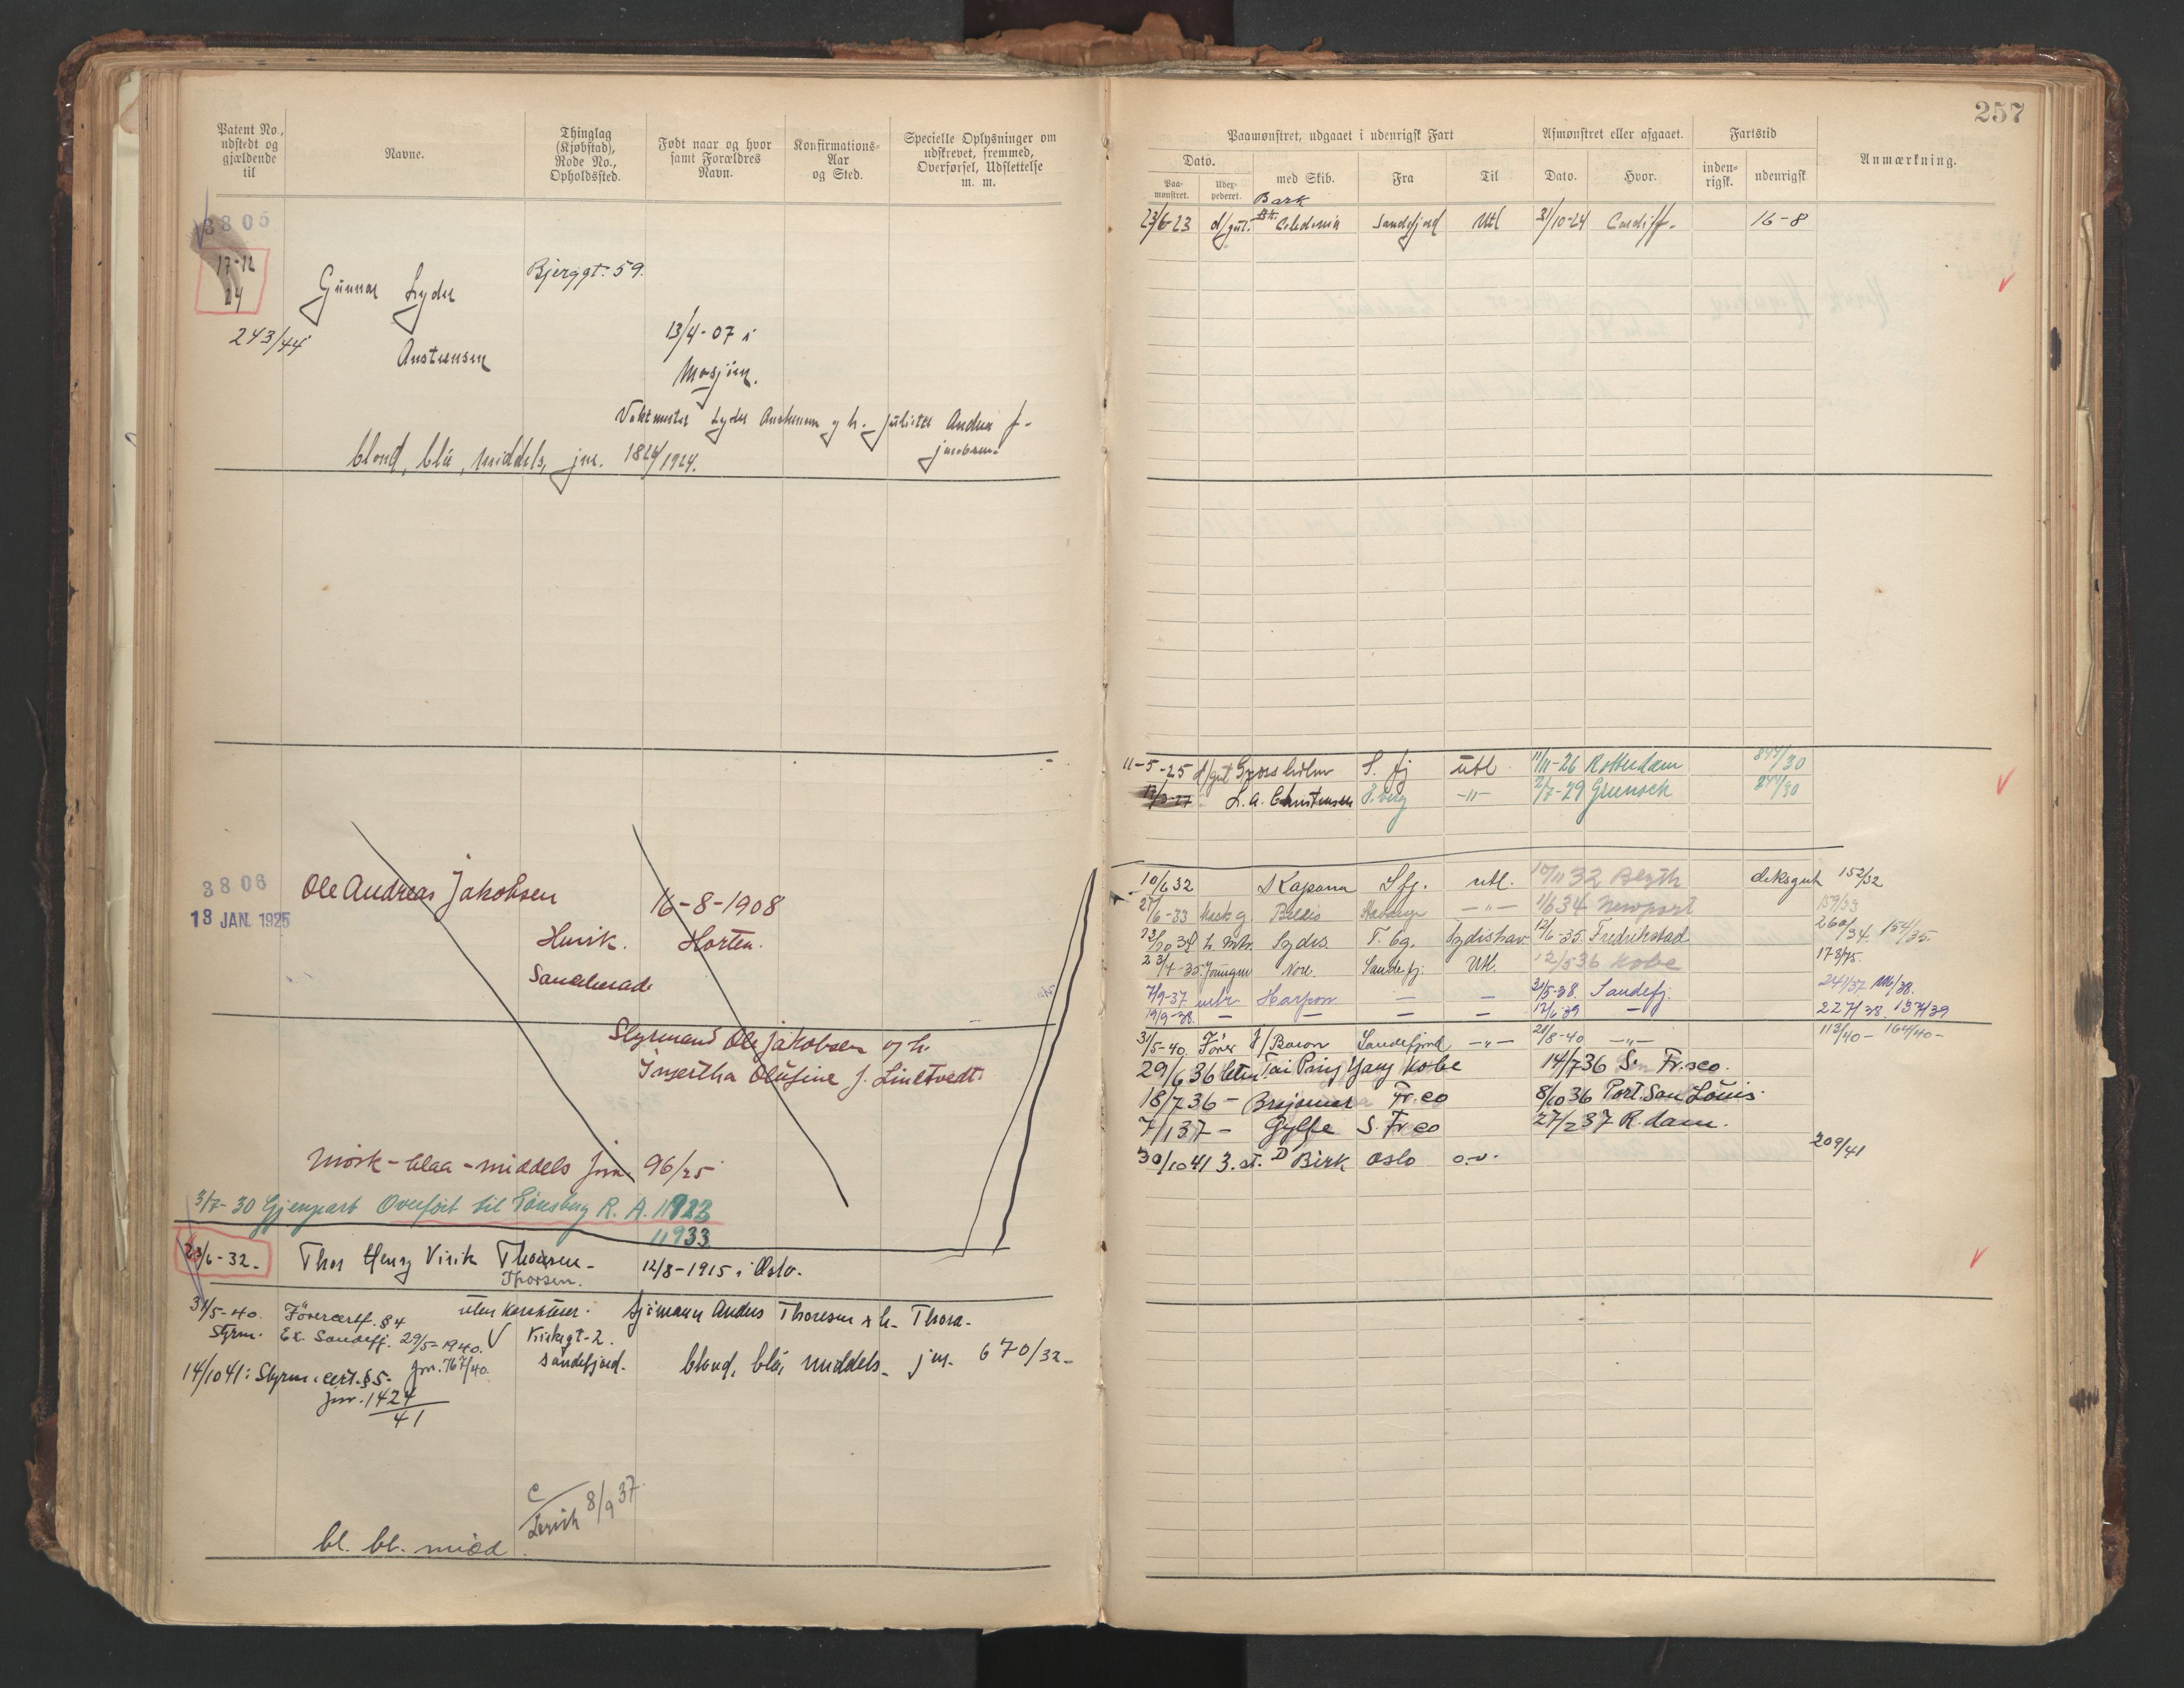 257
Patent No., udstedt og gjældende til
Navne.
Thinglag (Kjøbstad), Rode No., Opholdssted.
Født naar og hvor samt Forældres Navn.
Konfirmations-Aar og Sted.
Specielle Oplysninger om udskrevet, fremmed, Overførsel, Udslettelse m. m.
Paamønstret, udgaaet i udenrigsk Fart
Afmønstret eller afgaaet.
Fartstid
Anmærkning.
Dato.
Paa-mønstret.
med Skib.
Fra
Til
Dato.
Hvor.
inden-rigsk.
udenrigsk
3805
17-12
24
243/44
Gunnar Lyder
Anstensen
Bjerggt. 59.
13/4-07 i
Mosjøen.
Vaktmester Lyder Anstensen og h. Andrea J-
blond, blå, middels, jnr. 1826/1924.
Bark
23/6-23 d/gut. Sandefjord Utl 31/10-24 Cardiff. 16-8
3806
13 JAN. 1925
Ole Andreas Jakobsen
16-8-1908
Horten.
Styrmand Ole Jakobsen og h.
Olufine f. Lintvedt.
Mørk-blaa-middels jnr 96/25
3/7-30 Gjenpart Overført til Tønsberg R. A. 11922
11933
11-5-25 d/gut S. fj utl 11/11-26 Rotterdam 844/30
L. A. Christensen T.berg -"- 2/7-29 844/30
23/6-32-
Thor Henry Virik Thoresen-
Thorsen.
12/8-1915 i Oslo.
31/5-40. Førercertf. §4
Styrm. Ex. Sandefj. 29/5-1940. V
jnr. 767/40.
14/10 41: Styrm. cert. §5.
jnr. 1424
41
Kirkegt-2.
Sandefjord.
Sjømann Anders Thoresen & h- Thora-
blond, blå, middels- jnr. 670/32-
8/9 37.
bl. bl. midd.
10/6 32 Kaponn Sfj. utl. 10/11 32 Blyth deksgut 152/32
27/6-33 -"- 11/6 34 Newport 159/33
12/10 34 Sydis T. bg. Sydishav 12/6-35. Fredrikstad 260/34. 154/35.
23/7-35. Jungm Nore. Sandefj. Utl. 12/5 36 Kobe 178/75.
7/9-37 mtr. Harpon — — 31/5-38. Sandefj. 241/37
19/9-38. — — — — 12/6 39 — 227/38. 137/39
31/5-40. Fører Bacon Sandefjord -"- 21/8-40 -"- 113/40- 164/40-
29/6 36 letm. Tai Ping Yang Kobe 14/7 36 Sn Fr.sco.
18/7 36 - Brajamar Fr.co 8/10 36 Port. San Louis.
7/1 37 - Gylfe S. Fr co 27/2 37 R.dam.
30/10 41 3. st. D Birk Oslo o.v. 209/41